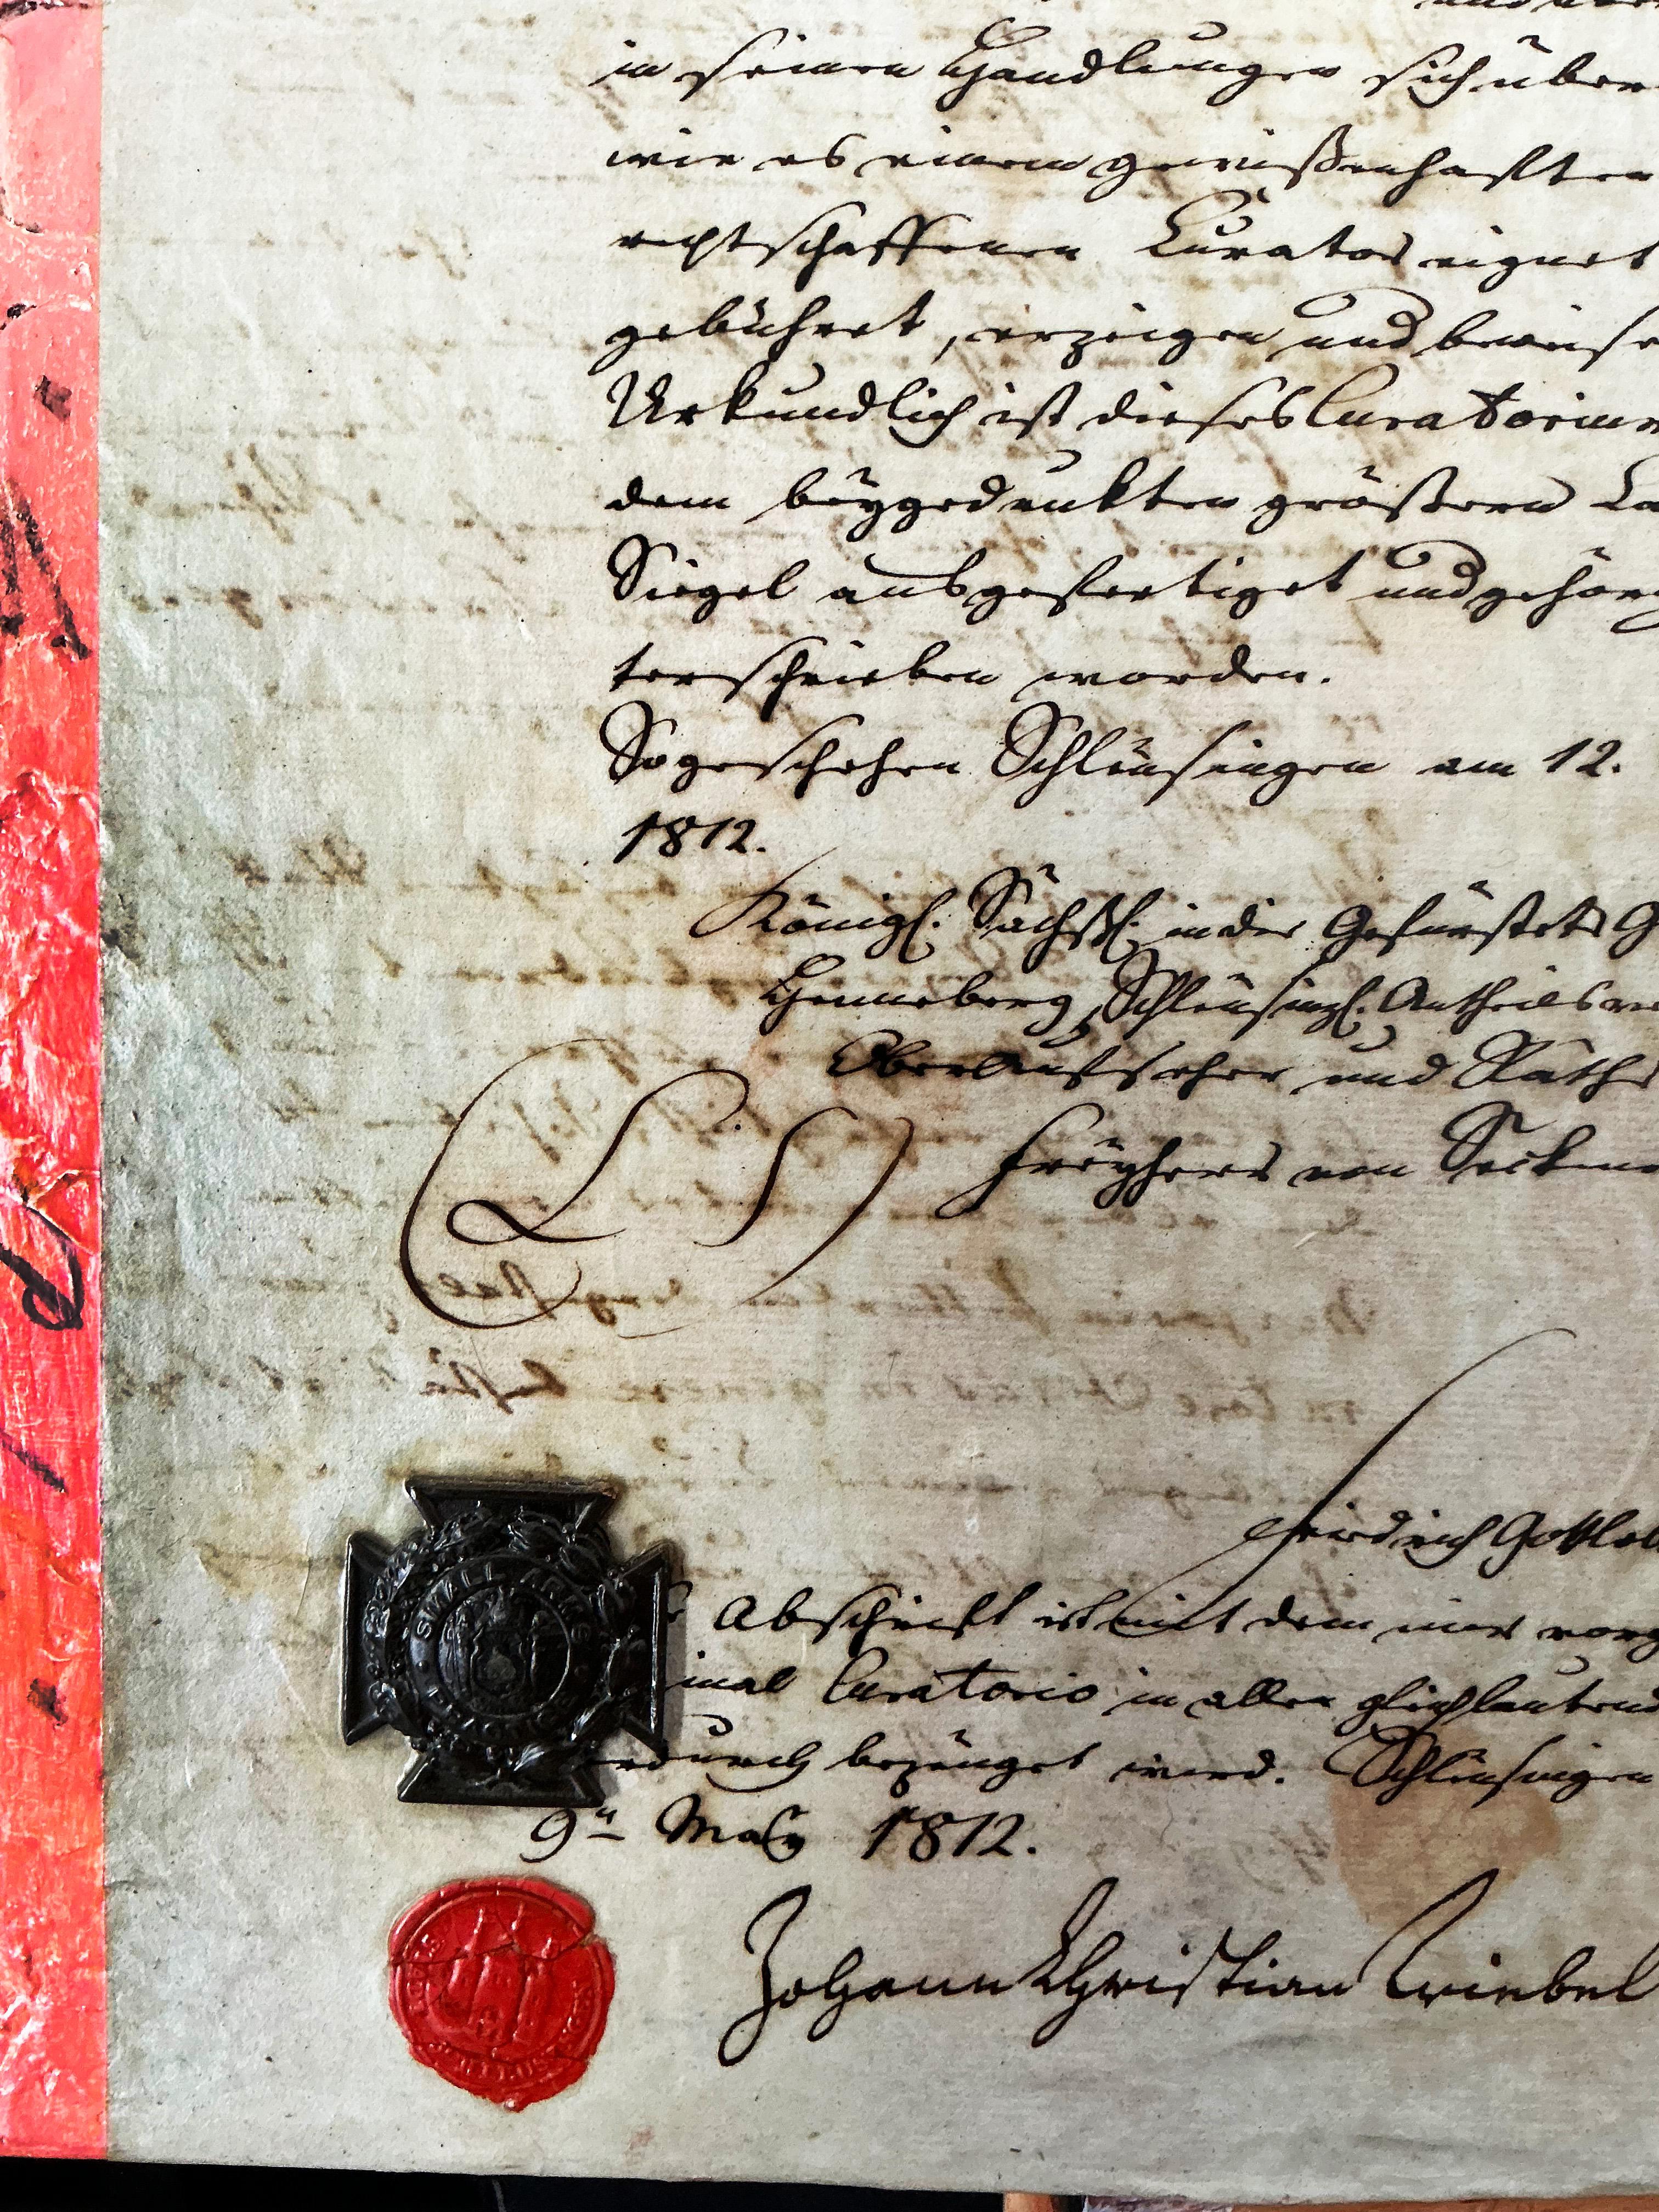 in seinen Handlungen sich über
wie es einem gewißenhaften
rechtschaffenen Curator eignet
gebühret, erzeigen und beweise
Urkundlich ist dieses Curatorium
dem beygedruckten größern
Siegel ausgefertiget und gehöri
terschrieben worden.
So geschehen Schleusingen am 12.
1812.
Königl. Sächßl. in der Gefürstete G
Henneberg, Schleusingl. Antheils
Oberaufseher und Räthe
L. S.
Freyherr von Seckend
Friedrich Gottlob
Abschrift ist mit dem mir vorg
inal Curatorio in allen gleichlautend
erdurch bezeuget wird. Schleusingen
9n May 1812.
Johann Christian Triebel
SMALL ARMS